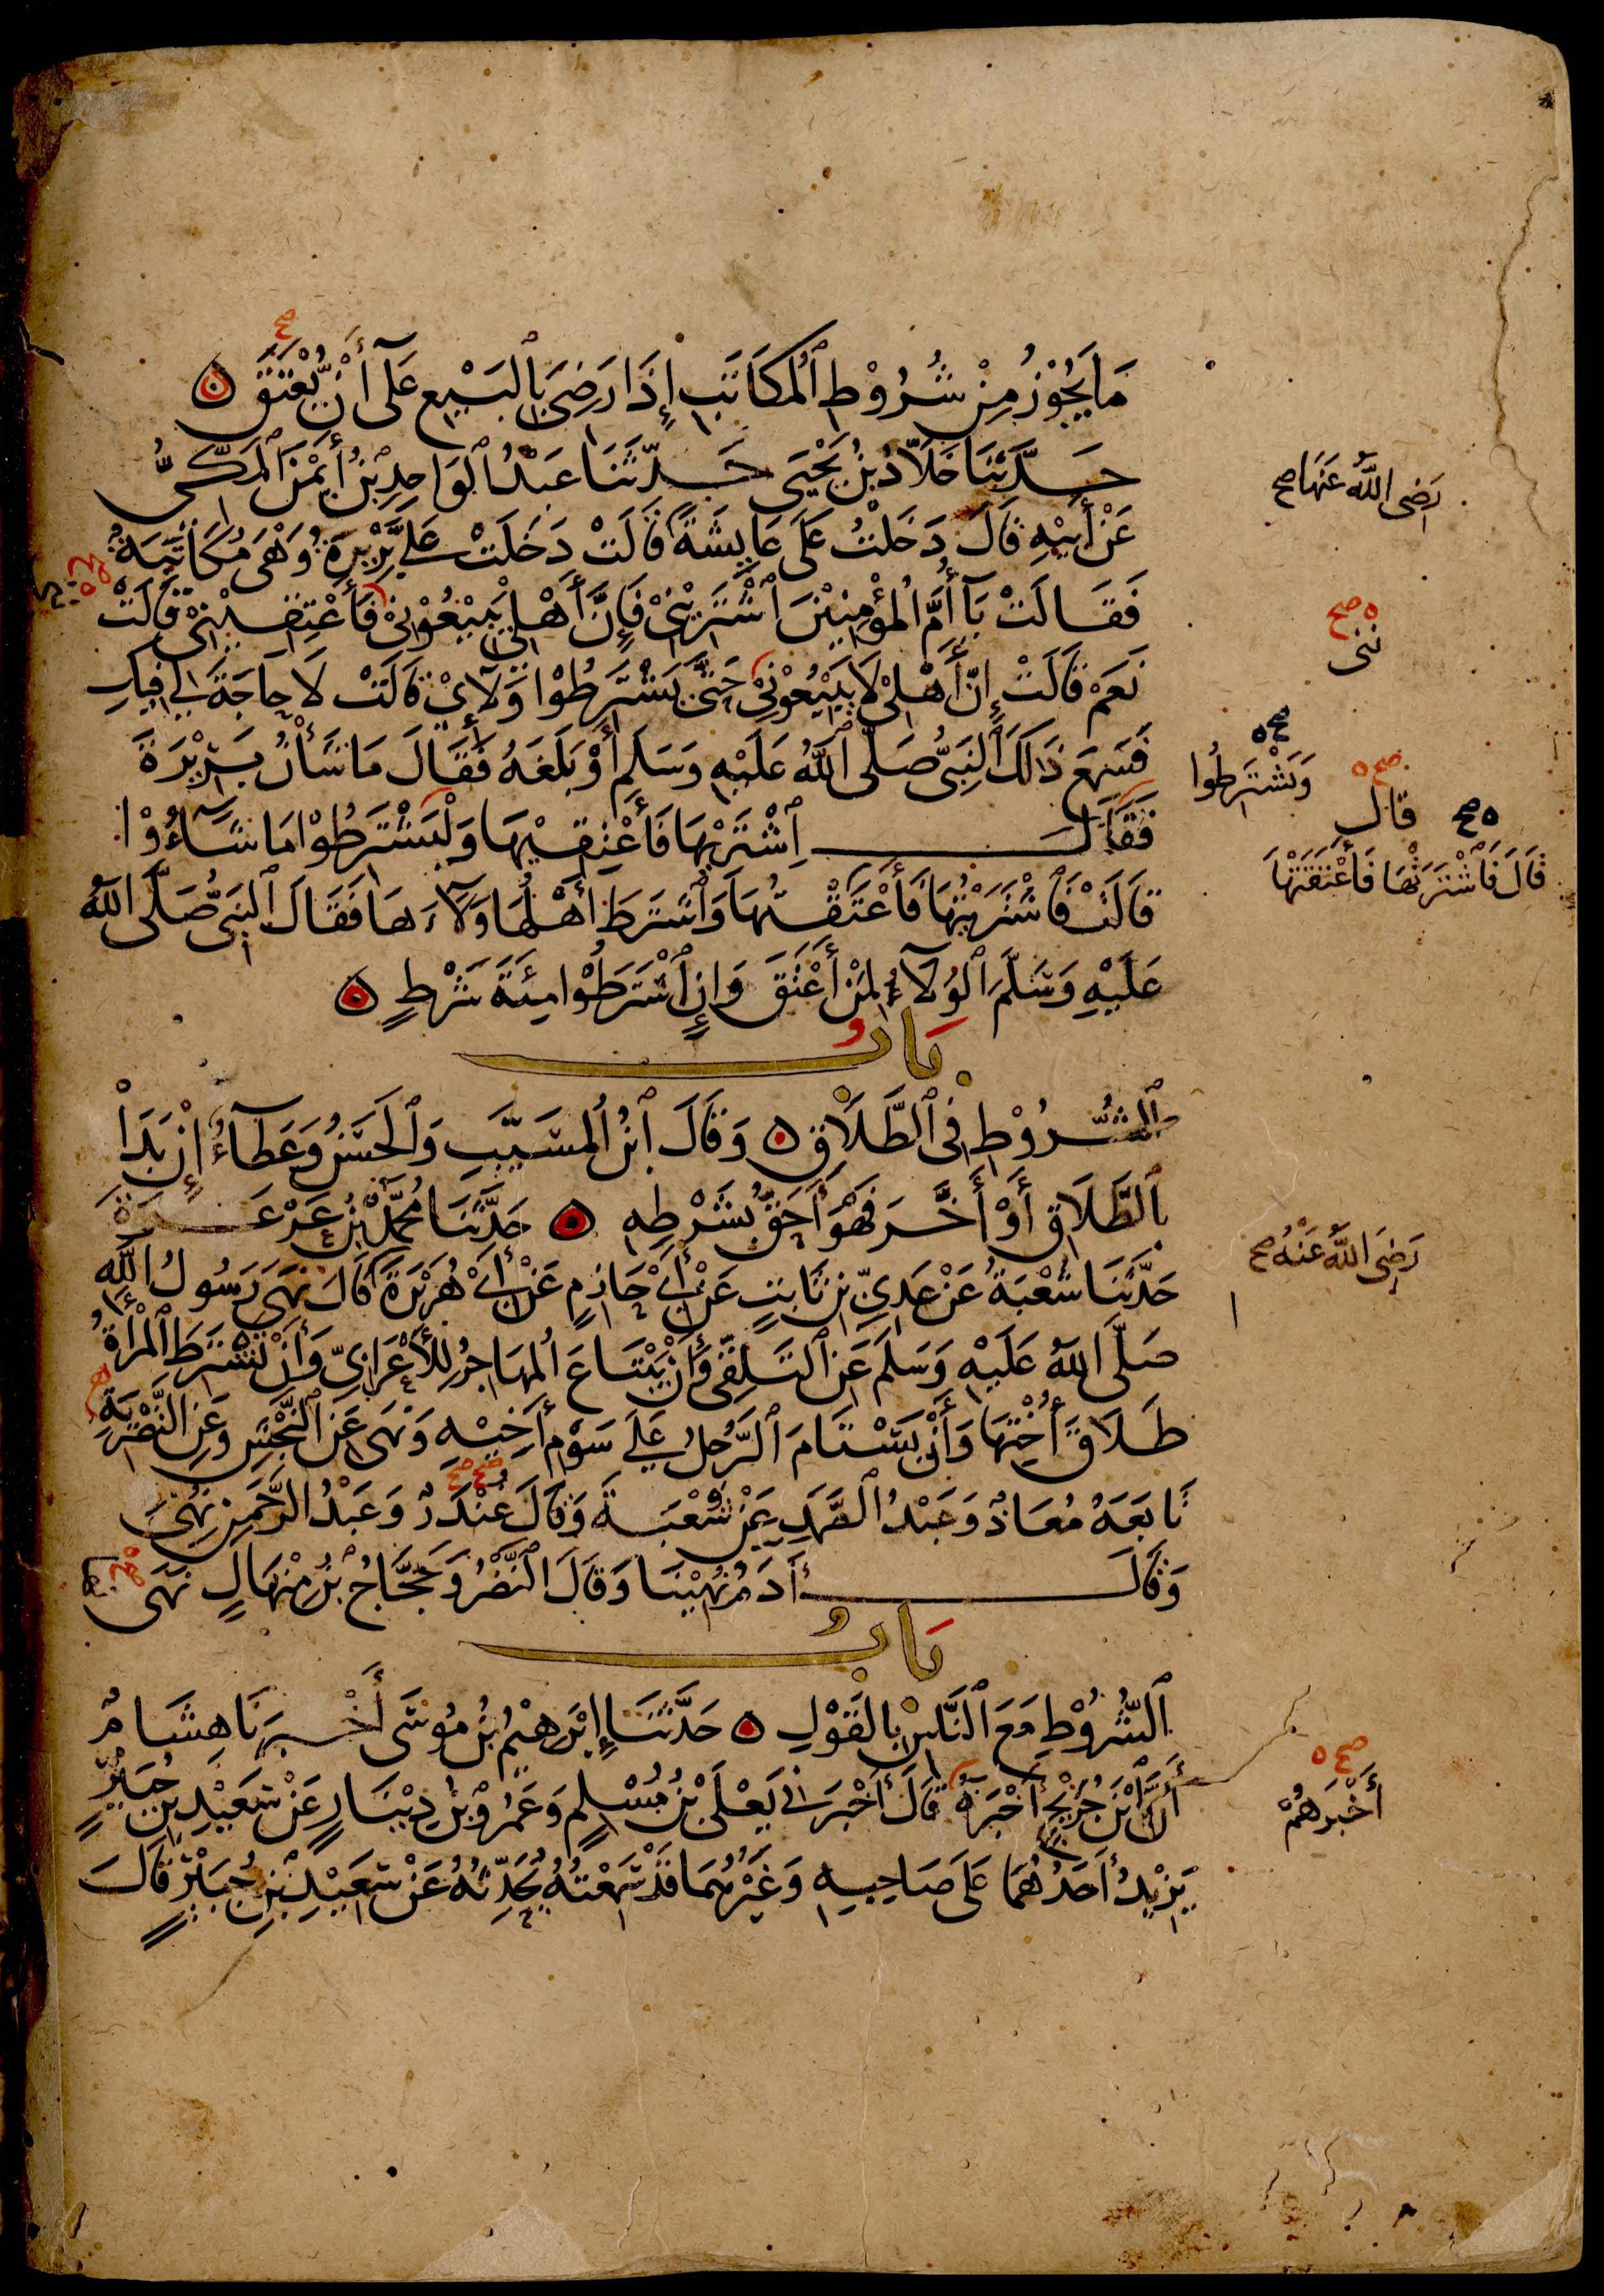 مَا يَجُوْزُ مِنْ شُرُوْطِ ٱلْمُكَاتَبِ إِذَا رَضِيَ بِالْبَيْعِ عَلَى أَنْ يُّعْتَقَ
حَدَّثَنَا خَلَّادُ بْنُ يَحْيَى حَدَّثَنَا عَبْدُ الْوَاحِدِ بْنُ أَيْمَنَ الْمَكِّيُّ
عَنْ أَبِيْهِ قَالَ دَخَلْتُ عَلَى عَايِشَةَ قَالَتْ دَخَلَتْ عَلَيَّ بَرِيْرَةُ وَهْيَ مُكَاتَبَةٌ
فَقَالَتْ يَآ أُمَّ الْمُؤْمِنِيْنَ اشْتَرِيْنِيْ فَإِنَّ أَهْلِيْ يَبِيْعُوْنِيْ فَأَعْتِقِيْنِيْ قَالَتْ
نَعَمْ قَالَتْ إِنَّ أَهْلِيْ لَا يَبِيْعُوْنِيْ حَتَّى يَشْتَرِطُوْا وَلَآءِيْ قَالَتْ لَا حَاجَةَ لِيْ فِيْكِ
فَسَمِعَ ذَالِكَ النَّبِيُّ صَلَّى اللّٰهُ عَلَيْهِ وَسَلَّمَ أَوْ بَلَغَهُ فَقَالَ مَا شَأْنُ بَرِيْرَةَ
فَقَالَ اِشْتَرِيْهَا فَأَعْتِقِيْهَا وَلْيَشْتَرِطُوْا مَا شَآءُوْا
قَالَتْ فَاشْتَرَيْتُهَا فَأَعْتَقْتُهَا وَاشْتَرَطَ أَهْلُهَا وَلَآءَهَا فَقَالَ النَّبِيُّ صَلَّى اللّٰهُ
عَلَيْهِ وَسَلَّمَ الْوَلَآءُ لِمَنْ أَعْتَقَ وَإِنِ اشْتَرَطُوْا مِئَةَ شَرْطٍ
بَابُ
الشُّرُوْطِ فِي الطَّلَاقِ وَقَالَ ابْنُ الْمُسَيَّبِ وَالْحَسَنُ وَعَطَآءٌ إِنْ بَدَأَ
بِالطَّلَاقِ أَوْ أَخَّرَ فَهُوَ أَحَقُّ بِشَرْطِهِ حَدَّثَنَا مُحَمَّدُ بْنُ عَرْعَرَةَ
حَدَّثَنَا شُعْبَةُ عَنْ عَدِيِّ بْنِ ثَابِتٍ عَنْ أَبِيْ حَازِمٍ عَنْ أَبِيْ هُرَيْرَةَ قَالَ نَهَى رَسُولُ اللّٰهِ
صَلَّى اللّٰهُ عَلَيْهِ وَسَلَّمَ عَنِ التَّلَقِّيْ وَأَنْ يَّبْتَاعَ الْمُهَاجِرُ لِلْأَعْرَابِيِّ وَأَنْ تَشْتَرِطَ الْمَرْأَةُ
طَلَاقَ أُخْتِهَا وَأَنْ يَسْتَامَ الرَّجُلُ عَلَى سَوْمِ أَخِيْهِ وَنَهَى عَنِ النَّجْشِ وَعَنِ التَّصْرِيَةِ
تَابَعَهُ مُعَاذٌ وَعَبْدُ الصَّمَدِ عَنْ شُعْبَةَ وَقَالَ غُنْدَرٌ وَعَبْدُ الرَّحْمَنِ نُهِيَ
وَقَالَ آدَمُ نُهِيْنَا وَقَالَ النَّضْرُ وَحَجَّاجُ بْنُ مِنْهَالٍ نَهَى
بَابُ
الشُّرُوْطِ مَعَ النَّاسِ بِالْقَوْلِ حَدَّثَنَا إِبْرَهِيْمُ بْنُ مُوْسَى أَخْبَرَنَا هِشَامٌ
أَنَّ ابْنَ جُرَيْجٍ أَخْبَرَهُ قَالَ أَخْبَرَنِيْ يَعْلَى بْنُ مُسْلِمٍ وَعَمْرُو بْنُ دِيْنَارٍ عَنْ سَعِيْدِ بْنِ جُبَيْرٍ
يَزِيْدُ أَحَدُهُمَا عَلَى صَاحِبِهِ وَغَيْرُهُمَا قَدْ سَمِعْتُهُ يُحَدِّثُهُ عَنْ سَعِيْدِ بْنِ جُبَيْرٍ قَالَ
رَضِيَ اللّٰهُ عَنْهَا صح
صح
ننى
صح
وَيَشْتَرِطُوا
صح
قال
صح
قَالَ فَاشْتَرَتْهَا فَأَعْتَقَتْهَا
رَضِيَ اللّٰهُ عَنْهُ صح
صح
أَخْبَرَهُمْ